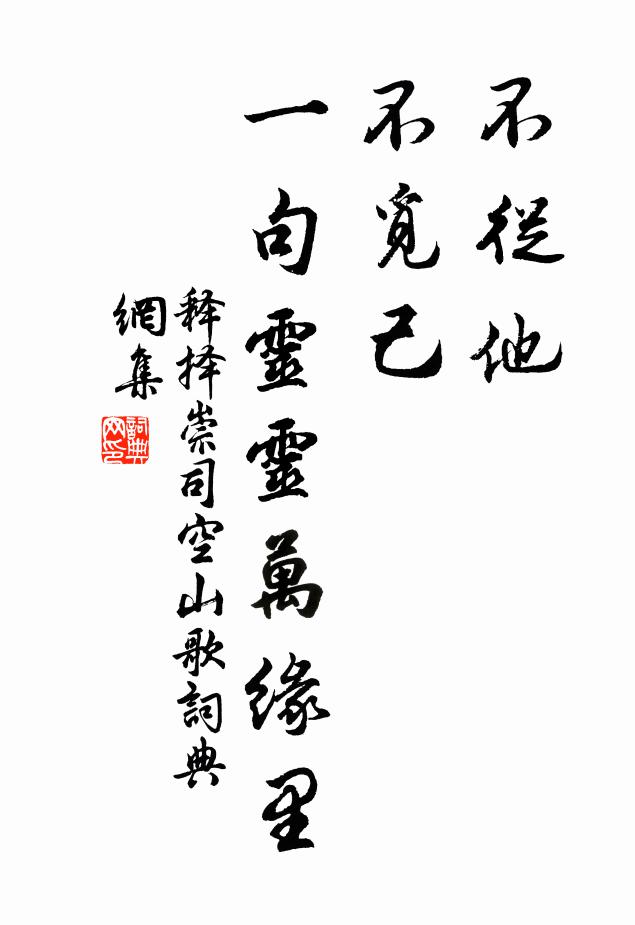 不從他
不覓己
一句靈靈萬緣里
释择崇司空山歌詞典
網集
詞典
网印